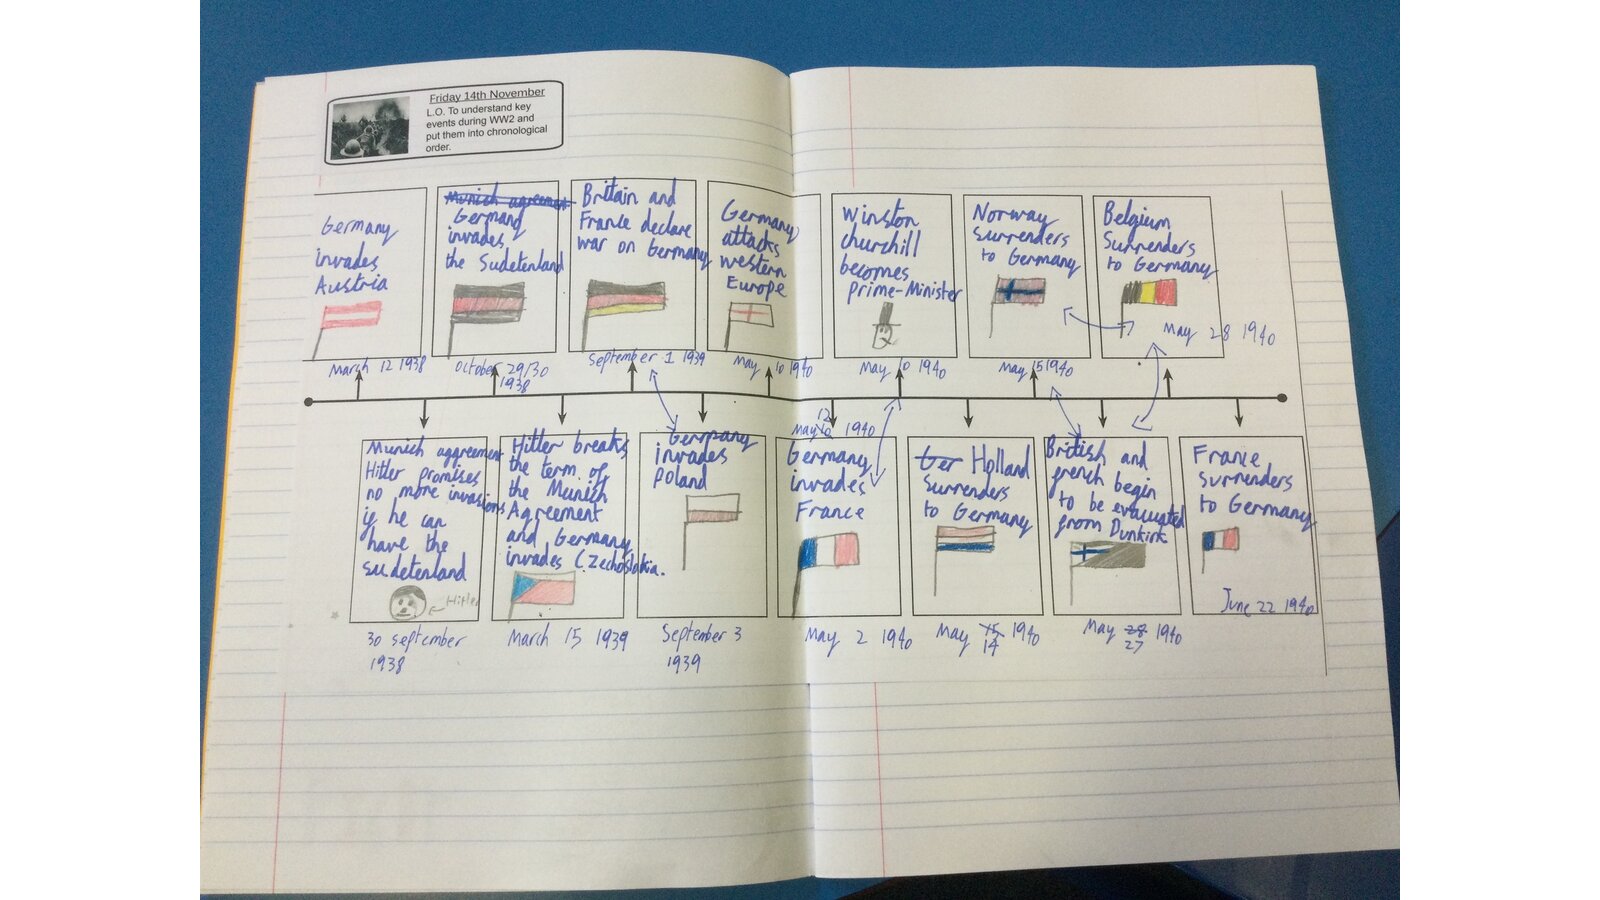 Friday 14th November
L.O. To understand key
events during WW2 and
put them into chronological
order.
Germany
invades
Austria
March 12 1938
Munich agreement
Germany
invades
the Sudetenland
October 29/30
1938
Britain and
France declare
war on Germany
September 1 1939
Germany
attacks
western
Europe
May 10 1940
Winston
churchill
becomes
prime-Minister
May 10 1940
Norway
surrenders
to Germany
May 15 1940
Belgium
Surrenders
to Germany
May 28 1940
Munich aggreement
Hitler promises
no more invasions
if he can
have the
sudetenland
Hitler
30 september
1938
Hitler breaks
the term of
the Munich
Agreement
and Germany
invades Czechoslokia.
March 15 1939
Germany
invades
Poland
September 3
1939
12
May 10 1940
Germany
invades
France
May 2 1940
Ger Holland
Surrenders
to Germany
May 15 1940
14
British and
french begin
to be evacuated
from Dunkirk
May 28 1940
27
France
surrenders
to Germany
June 22 1940